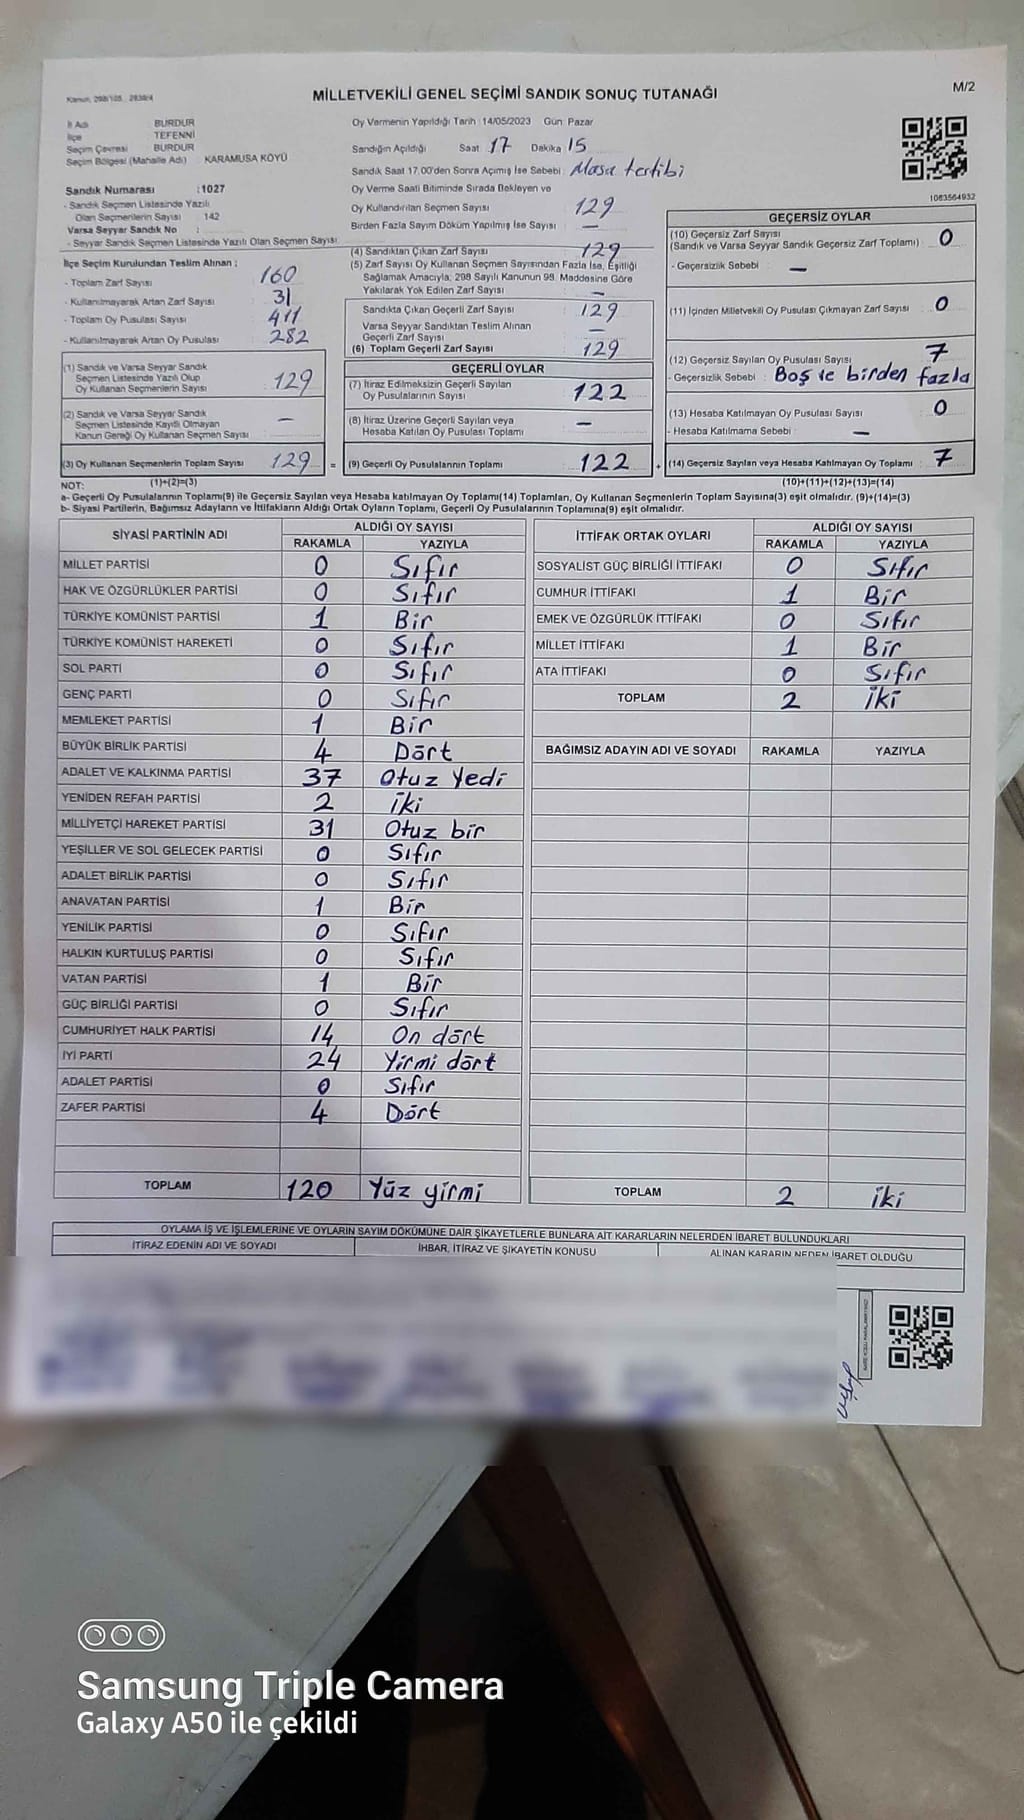 Kanun, 298/105, 2839/4
MİLLETVEKİLİ GENEL SEÇİMİ SANDIK SONUÇ TUTANAĞI
M/2
İl Adı BURDUR
İlçe TEFENNİ
Seçim Çevresi BURDUR
Seçim Bölgesi (Mahalle Adı) KARAMUSA KÖYÜ
Sandık Numarası :1027
- Sandık Seçmen Listesinde Yazılı
Olan Seçmenlerin Sayısı : 142
Varsa Seyyar Sandık No :
- Seyyar Sandık Seçmen Listesinde Yazılı Olan Seçmen Sayısı
Oy Vermenin Yapıldığı Tarih : 14/05/2023 Gün: Pazar
Sandığın Açıldığı Saat 17 Dakika 15
Sandık Saat 17.00'den Sonra Açımış İse Sebebi : Masa tertibi
Oy Verme Saati Bitiminde Sırada Bekleyen ve
Oy Kullandırılan Seçmen Sayısı : 129
Birden Fazla Sayım Döküm Yapılmış İse Sayısı : —
1063564932
İlçe Seçim Kurulundan Teslim Alınan ;
- Toplam Zarf Sayısı : 160
- Kullanılmayarak Artan Zarf Sayısı : 31
- Toplam Oy Pusulası Sayısı : 411
- Kullanılmayarak Artan Oy Pusulası : 282
(1) Sandık ve Varsa Seyyar Sandık
Seçmen Listesinde Yazılı Olup
Oy Kullanan Seçmenlerin Sayısı : 129
(2) Sandık ve Varsa Seyyar Sandık
Seçmen Listesinde Kayıtlı Olmayan
Kanun Gereği Oy Kullanan Seçmen Sayısı : —
(3) Oy Kullanan Seçmenlerin Toplam Sayısı 129 =
(4) Sandıktan Çıkan Zarf Sayısı : 129
(5) Zarf Sayısı Oy Kullanan Seçmen Sayısından Fazla İse, Eşitliği
Sağlamak Amacıyla, 298 Sayılı Kanunun 98. Maddesine Göre
Yakılarak Yok Edilen Zarf Sayısı : —
Sandıkta Çıkan Geçerli Zarf Sayısı : 129
Varsa Seyyar Sandıktan Teslim Alınan
Geçerli Zarf Sayısı : —
(6) Toplam Geçerli Zarf Sayısı : 129
GEÇERLİ OYLAR
(7) İtiraz Edilmeksizin Geçerli Sayılan
Oy Pusulalarının Sayısı : 122
(8) İtiraz Üzerine Geçerli Sayılan veya
Hesaba Katılan Oy Pusulası Toplamı : —
(9) Geçerli Oy Pusulalarının Toplamı : 122 +
GEÇERSİZ OYLAR
(10) Geçersiz Zarf Sayısı
(Sandık ve Varsa Seyyar Sandık Geçersiz Zarf Toplamı) : 0
- Geçersizlik Sebebi : —
(11) İçinden Milletvekili Oy Pusulası Çıkmayan Zarf Sayısı : 0
(12) Geçersiz Sayılan Oy Pusulası Sayısı : 7
- Geçersizlik Sebebi : Boş ve birden fazla
(13) Hesaba Katılmayan Oy Pusulası Sayısı : 0
- Hesaba Katılmama Sebebi : —
(14) Geçersiz Sayılan veya Hesaba Katılmayan Oy Toplamı : 7
NOT: (1)+(2)=(3) (10)+(11)+(12)+(13)=(14)
a- Geçerli Oy Pusulalarının Toplamı(9) ile Geçersiz Sayılan veya Hesaba katılmayan Oy Toplamı(14) Toplamları, Oy Kullanan Seçmenlerin Toplam Sayısına(3) eşit olmalıdır. (9)+(14)=(3)
b- Siyasi Partilerin, Bağımsız Adayların ve İttifakların Aldığı Ortak Oyların Toplamı, Geçerli Oy Pusulalarının Toplamına(9) eşit olmalıdır.
SİYASİ PARTİNİN ADI ALDIĞI OY SAYISI
RAKAMLA YAZIYLA
MİLLET PARTİSİ 0 Sıfır
HAK VE ÖZGÜRLÜKLER PARTİSİ 0 Sıfır
TÜRKİYE KOMÜNİST PARTİSİ 1 Bir
TÜRKİYE KOMÜNİST HAREKETİ 0 Sıfır
SOL PARTİ 0 Sıfır
GENÇ PARTİ 0 Sıfır
MEMLEKET PARTİSİ 1 Bir
BÜYÜK BİRLİK PARTİSİ 4 Dört
ADALET VE KALKINMA PARTİSİ 37 Otuz Yedi
YENİDEN REFAH PARTİSİ 2 İki
MİLLİYETÇİ HAREKET PARTİSİ 31 Otuz bir
YEŞİLLER VE SOL GELECEK PARTİSİ 0 Sıfır
ADALET BİRLİK PARTİSİ 0 Sıfır
ANAVATAN PARTİSİ 1 Bir
YENİLİK PARTİSİ 0 Sıfır
HALKIN KURTULUŞ PARTİSİ 0 Sıfır
VATAN PARTİSİ 1 Bir
GÜÇ BİRLİĞİ PARTİSİ 0 Sıfır
CUMHURİYET HALK PARTİSİ 14 On dört
İYİ PARTİ 24 Yirmi dört
ADALET PARTİSİ 0 Sıfır
ZAFER PARTİSİ 4 Dört
TOPLAM 120 Yüz yirmi
İTTİFAK ORTAK OYLARI ALDIĞI OY SAYISI
RAKAMLA YAZIYLA
SOSYALİST GÜÇ BİRLİĞİ İTTİFAKI 0 Sıfır
CUMHUR İTTİFAKI 1 Bir
EMEK VE ÖZGÜRLÜK İTTİFAKI 0 Sıfır
MİLLET İTTİFAKI 1 Bir
ATA İTTİFAKI 0 Sıfır
TOPLAM 2 İki
BAĞIMSIZ ADAYIN ADI VE SOYADI RAKAMLA YAZIYLA
TOPLAM 2 İki
OYLAMA İŞ VE İŞLEMLERİNE VE OYLARIN SAYIM DÖKÜMÜNE DAİR ŞİKAYETLERLE BUNLARA AİT KARARLARIN NELERDEN İBARET BULUNDUKLARI
İTİRAZ EDENİN ADI VE SOYADI İHBAR, İTİRAZ VE ŞİKAYETİN KONUSU ALINAN KARARIN NEDEN İBARET OLDUĞU
Samsung Triple Camera
Galaxy A50 ile çekildi